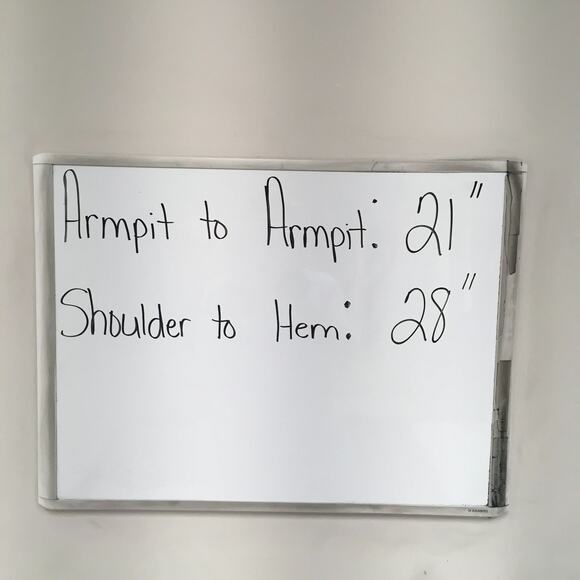 Armpit to Armpit: 21"
Shoulder to Hem: 28"